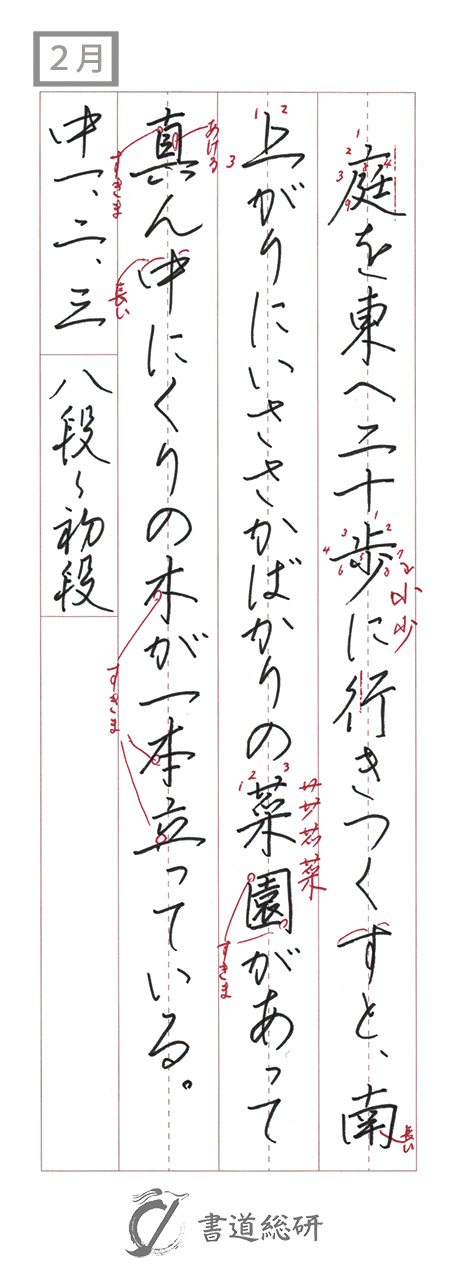 2月
庭を東へ二十歩に行きつくすと、南
上がりにいささかばかりの菜園があって
真ん中にくりの木が一本立っている。
中一、二、三
八段〜初段
1
2
3
4
9
1
2
3
4
6
7
8
小
少
長い
1
2
3
1
2
3
菜
すきま
あける
すきま
長い
すきま
書道総研